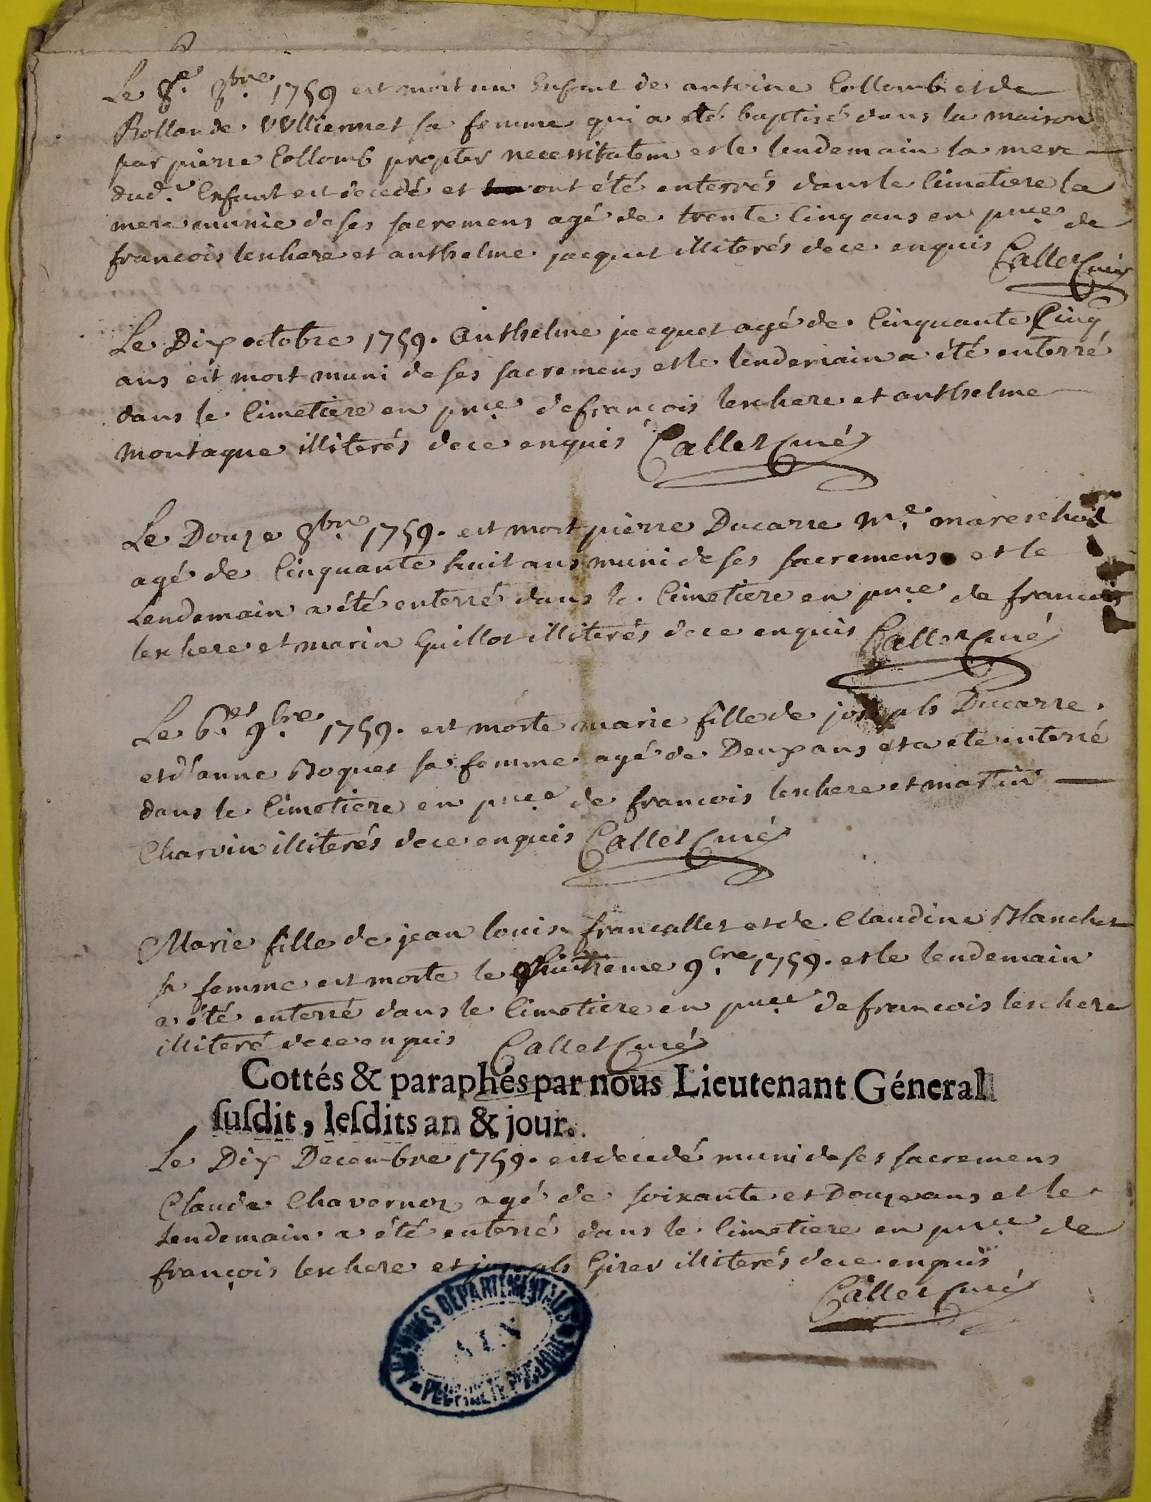 Le 8.es 8bre. 1759 est mort un Enfant de antoine Collomb et de
Rollande VVlliermet sa femme qui a été baptisé dans la maison
par pierre Collomb propter necessitatem et le lendemain la mere
dud.t Enfant est decedé et ont été enterrés dans le Cimetiere la
mere munie de ses sacremens agé de trente Cinq ans en pnce de
francois leschere et anthelme jacquet illiterés de ce enquis Callet Curé
Le Dix octobre 1759. Anthelme jacquet agé de Cinquante Cinq
ans est mort muni de ses sacremens et le lendemain a été enterré
dans le Cimetiere en pnce de francois leschere et anthelme
montagne illiterés de ce enquis Callet Curé
Le Douze 8bre 1759. est mort pierre Ducarre M.e mareschal
agé de Cinquante huit ans muni de ses sacremens et le
Lendemain a été enterré dans le Cimetiere en pnce de francois
leschere et marin Guillot illiterés de ce enquis Callet Curé
Le 6.es 9bre. 1759. est morte marie fille de joseph Ducarre
et d'anne Boquet sa femme agé de Deux ans et a eté enterré
dans le Cimetiere en pnce de francois leschere et martin
Charvin illiterés de ce enquis Callet Curé
Marie fille de jean louis francallet et de Claudine Blanchet
sa femme est morte le huitieme 9.bre 1759. et le lendemain
a été enterré dans le Cimetiere en pnce de francois leschere
illiteré de ce enquis Callet Curé
Cottés & paraphés par nous Lieutenant Géneral
ſuſdit, leſdits an & jour.
Le Dix Decembre 1759. est decedé muni de ses sacremens
Claude Chavernoz agé de soixante et Douze ans et le
Lendemain a été enterré dans le Cimetiere en pnce de
françois leschere et joseph Girer illiterés de ce enquis
Callet Curé
ARCHIVES DÉPARTEMENTALES
AIN
PROPRIÉTÉ PUBLIQUE